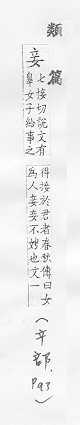 類篇
妾
七接切說文有
辠女子給事之
得接於君者春秋傳曰女
為人妾妾不娉也文一
(辛部. P93)